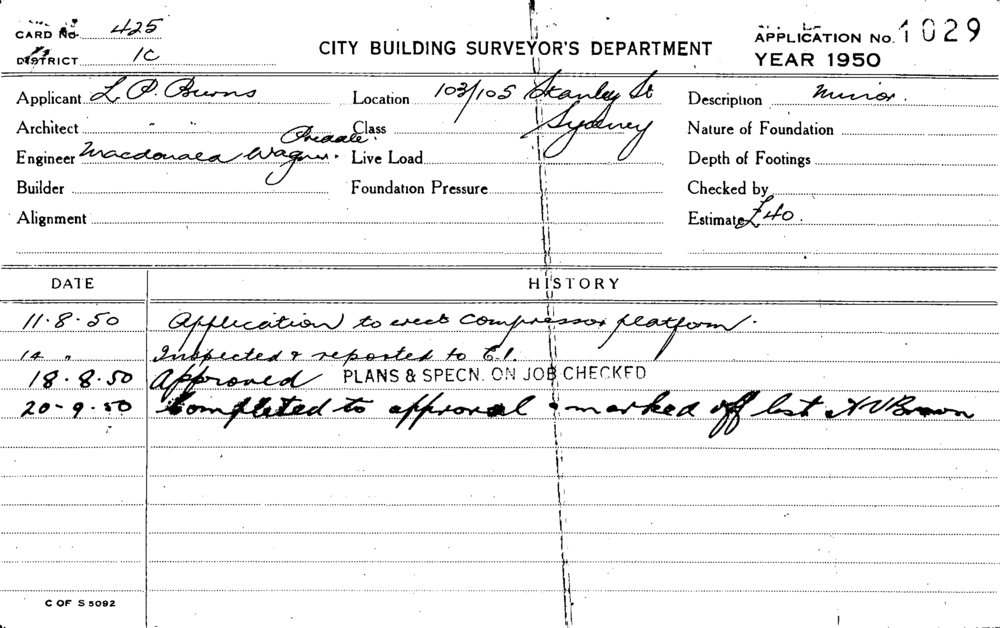 CARD No. 425
DISTRICT 1C
CITY BUILDING SURVEYOR'S DEPARTMENT
APPLICATION No. 1029
YEAR 1950
Applicant L. P. Burns Location 103/105 Stanley St Description Minor.
Architect " Class Sydney Nature of Foundation
Engineer Macdonald Wagner. Priddle. Live Load Depth of Footings
Builder Foundation Pressure Checked by
Alignment Estimate £40.
DATE HISTORY
11.8.50 Application to erect compressor platform.
14 " Inspected & reported to C.I.
18.8.50 Approved PLANS & SPECN. ON JOB CHECKED
20-9.50 Completed to approval & marked off list A V Brown
C OF S 5092